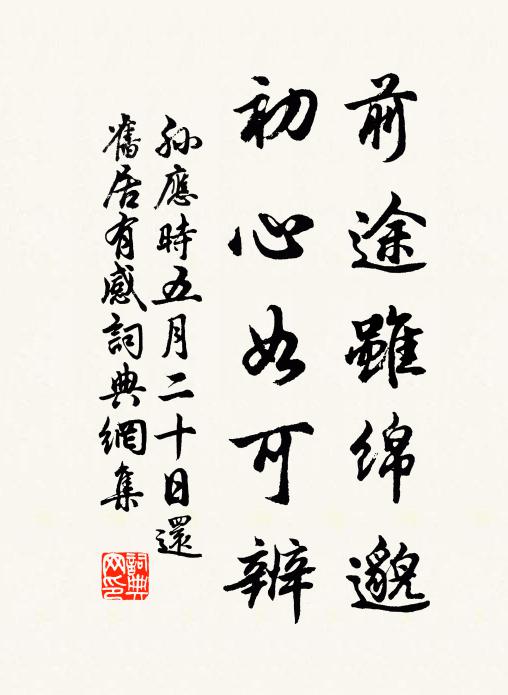 前途雖綿邈
初心如可辨
孫應時五月二十日還
舊居有感詞典網集
詞典網印